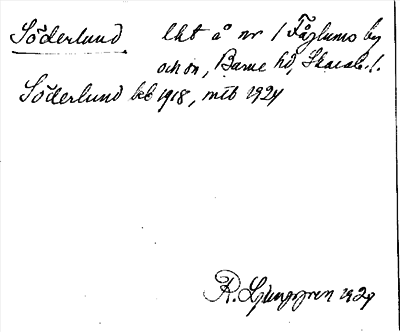 Söderlund lht å nr 1 Fåglums by
och sn, Barne hd, Skarab. l.
Söderlund kb 1918, mtb 1924
R. Ljunggren 1929